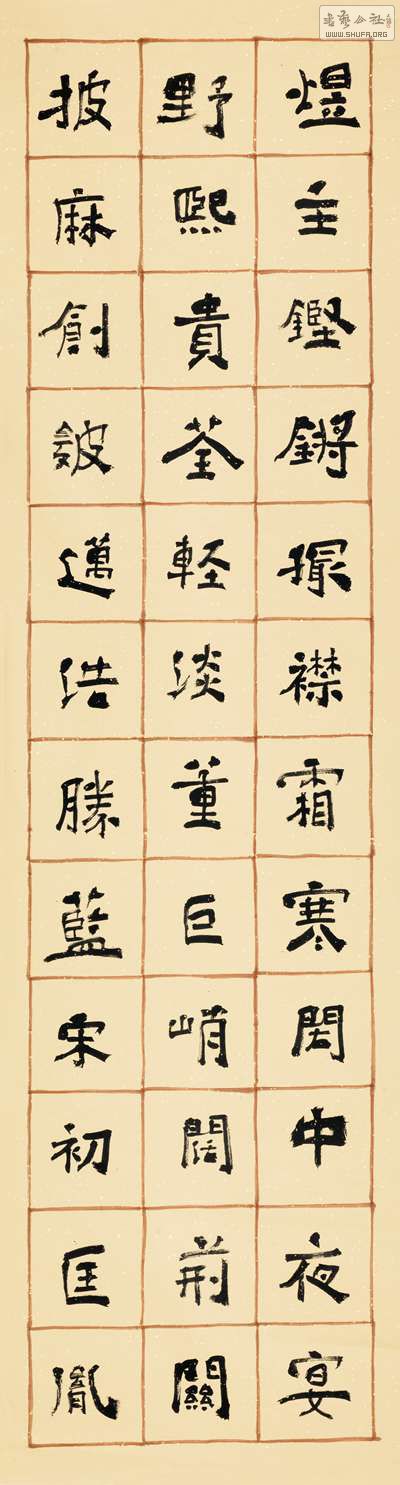 書藝公社
WWW.SHUFA.ORG
煜主鏗鏘撮襟霜寒閎中夜宴
野熙貴荃軽淡董巨峭闊荊關
披麻創皴邁浩勝藍宋初匡胤